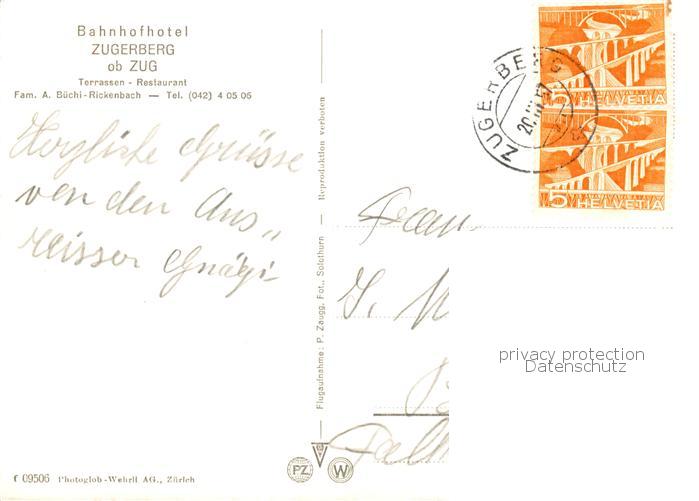 Bahnhofhotel
ZUGERBERG
ob ZUG
Terrassen - Restaurant
Fam. A. Büchi-Rickenbach — Tel. (042) 4 05 06
Herzliche Grüsse
von den Aus„
reisser Gnägi-
f 09506 Photoglob-Wehrli AG., Zürich
Flugaufnahme: P. Zaugg, Fot., Solothurn — Reproduktion verboten
PZ W
ZUGERBERG
5 HELVETIA
5 HELVETIA
Frau
privacy protection
Datenschutz